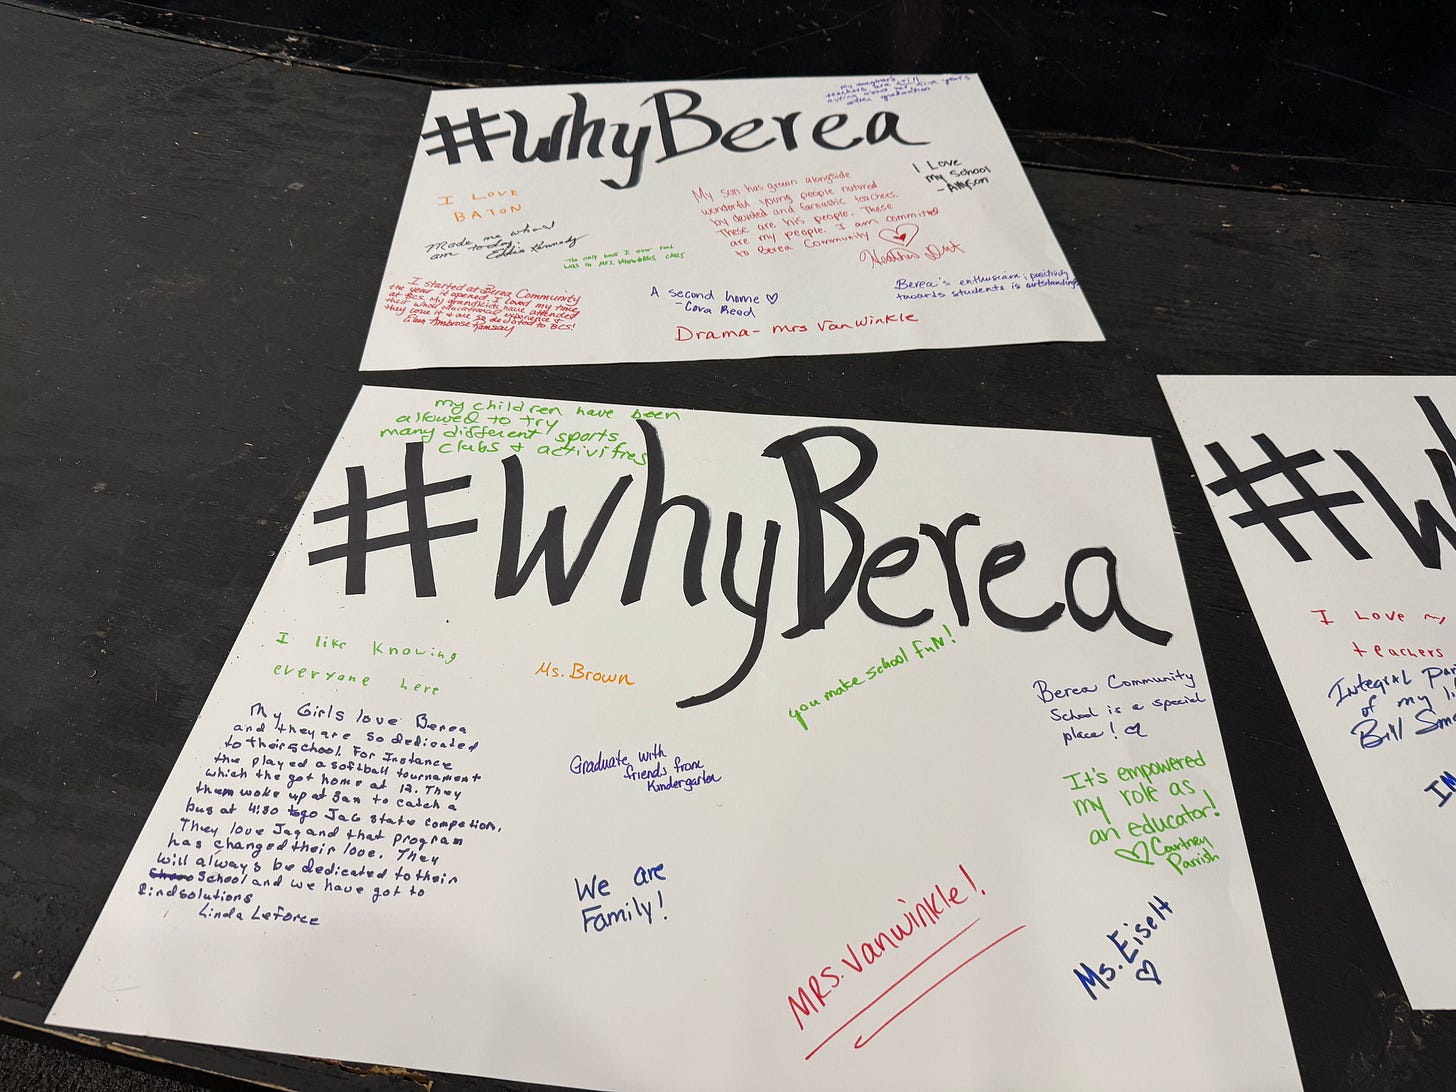 #WhyBerea
my daughter's
teachers are still
asking about her five years
after graduation
I LOVE
BATON
Made me who I
am today!
Eddie Kennedy
The only book I ever read
was in Mrs. Vanwinkles class
My son has grown alongside
wonderful young people nutured
by devoted and fantastic teachers.
These are his people. These
are my people. I am committed
to Berea Community
I Love
my school
-Allyson
I started at Berea Community
the year it opened. I loved my time
at BCS. My grandkids have attended
their whol educational experience &
they love it & are so devoted to BCS!
Ambrose Ramsay
A second home ♡
-Cora Reed
Drama- mrs VanWinkle
Berea's enthusiasm; positivity
towards students is outstanding
my children have been
allowed to try
many different sports
clubs & activities
#WhyBerea
I like Knowing
everyone here
Ms. Brown
you make school fuN!
My Girls love Berea
and they are so dedicated
to their school. For Instance
the played a softball tournament
which the got home at 12. They
them woke up at 3am to catch a
bus at 4:30 to go Jag state competion.
They love Jag and that program
has changed their love. They
will always be dedicated to their
School and we have got to
find solutions
Linda Leforce
Graduate with
friends from
Kindergarten
We are
Family!
Berea Community
School is a special
place! ♡
It's empowered
my role as
an educator!
♡ Courtney
Parrish
MRS. Vanwinkle!
Ms. Eiselt
♡
#W
I Love
teachers
Integral Par
of my li
Bill Sm